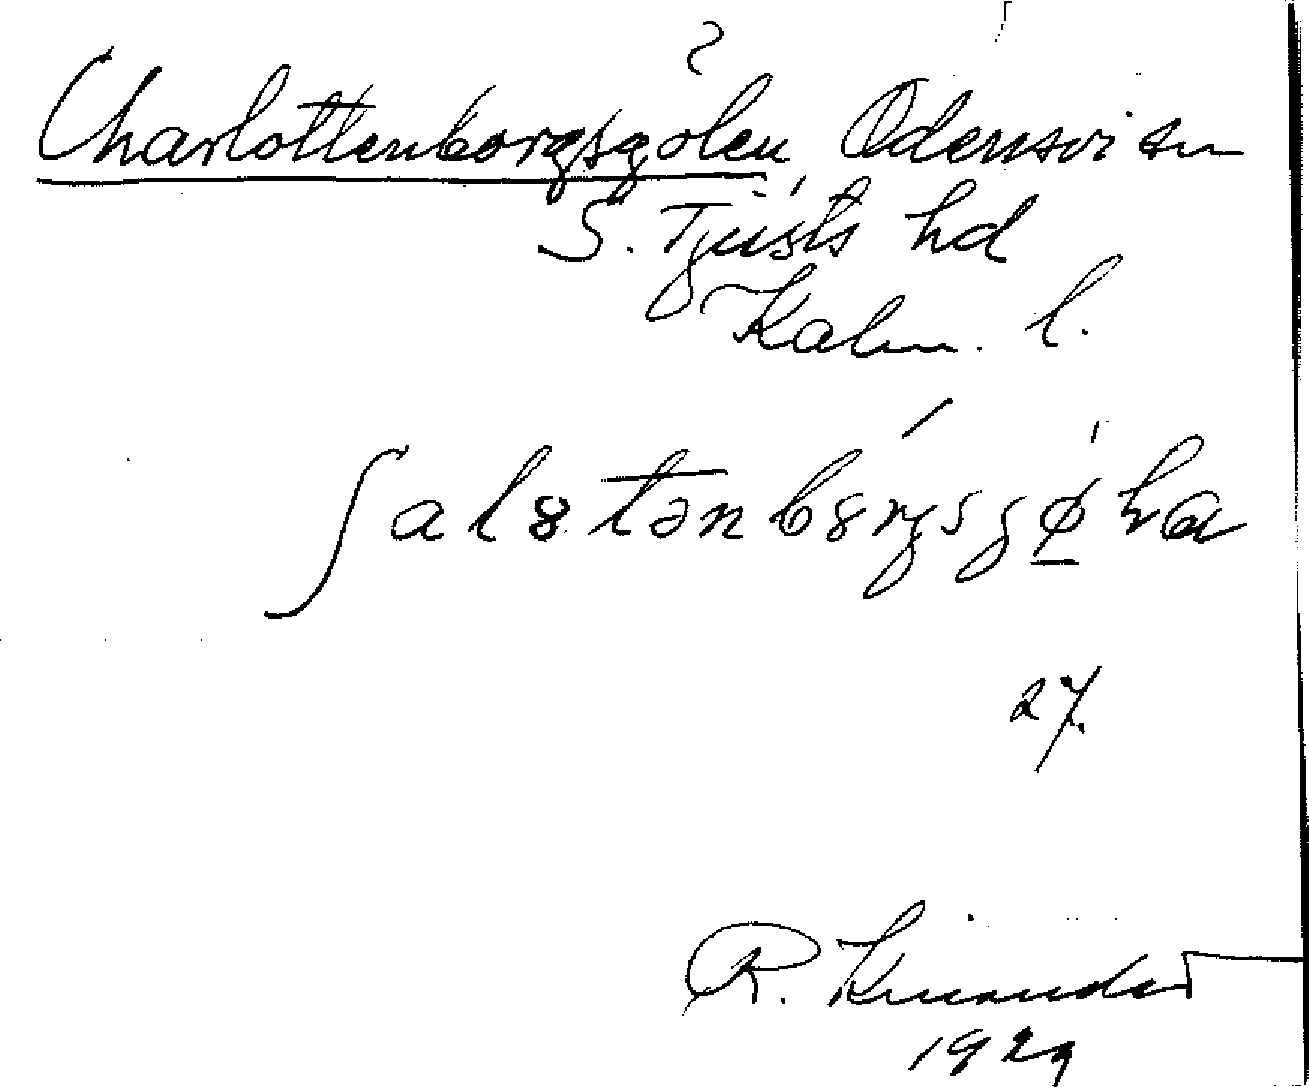 Charlottenborgsgölen, Odensvi sn
S. Tjusts hd
Kalm. l.
ʃalɞtənbɞrgsgø̱lɑ
27.
R. Kinander
1929